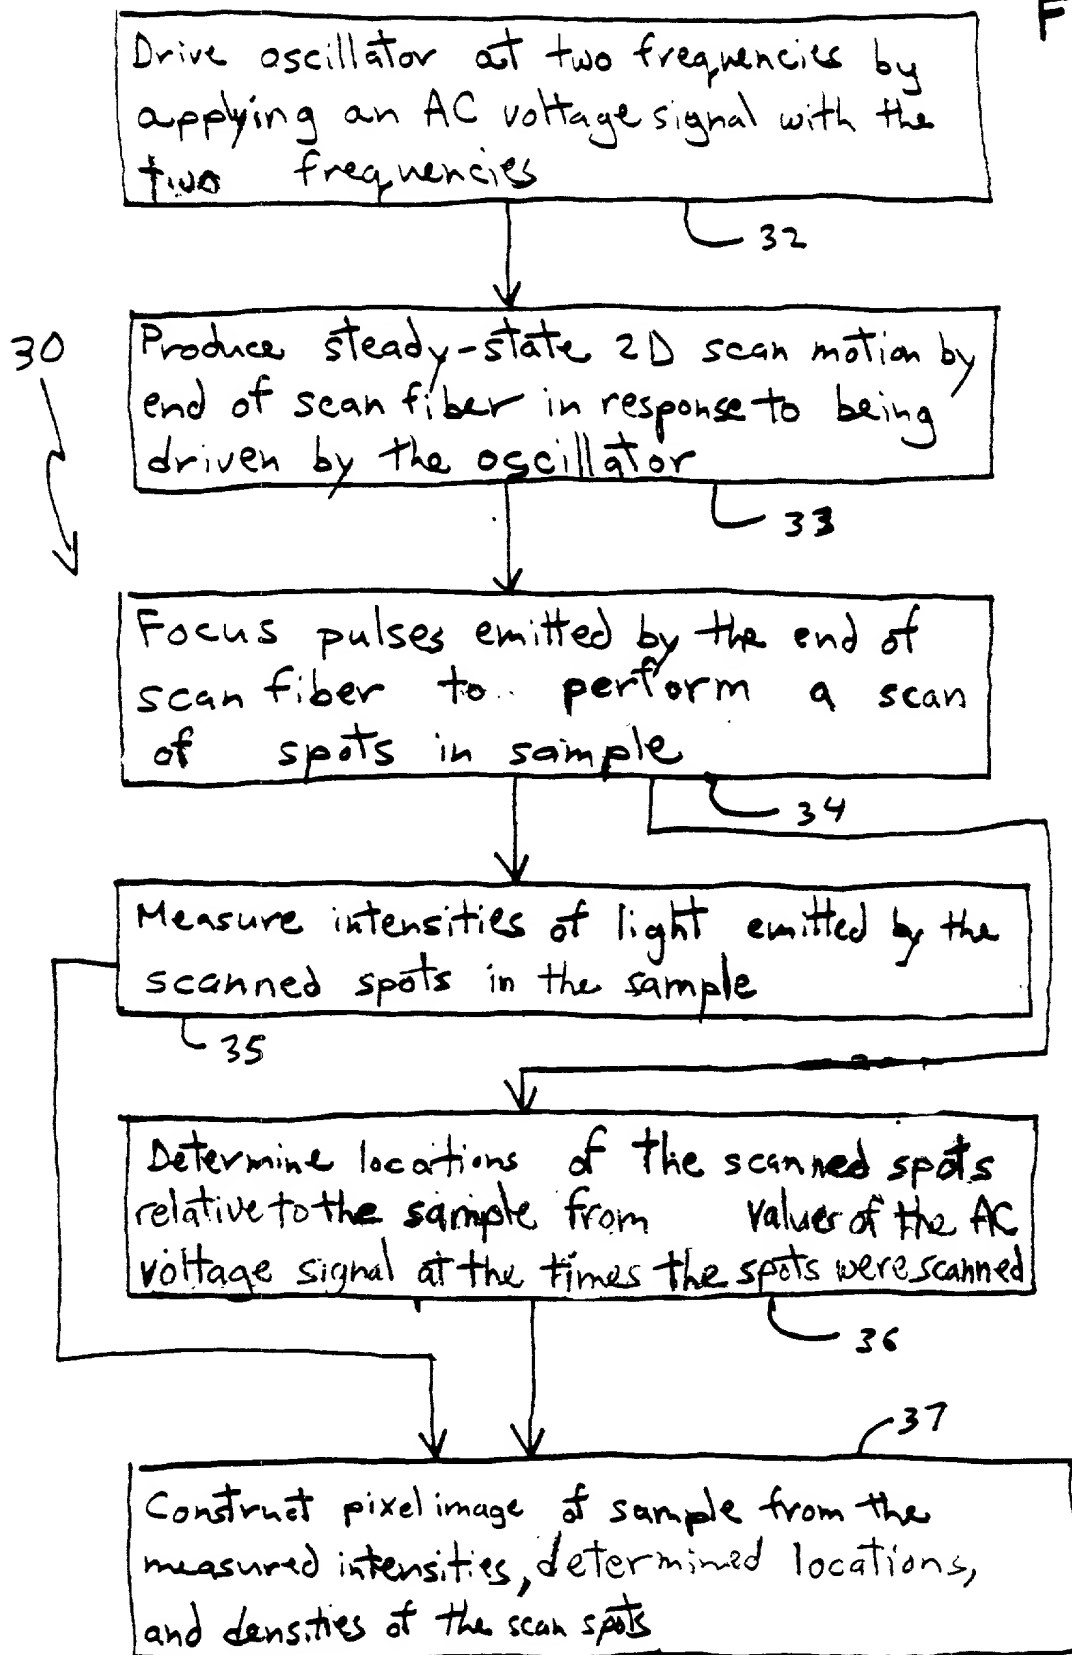 F
Drive oscillator at two frequencies by
applying an AC voltage signal with the
two frequencies
32
30
Produce steady-state 2D scan motion by
end of scan fiber in response to being
driven by the oscillator
33
Focus pulses emitted by the end of
scan fiber to perform a scan
of spots in sample
34
Measure intensities of light emitted by the
scanned spots in the sample
35
Determine locations of the scanned spots
relative to the sample from values of the AC
voltage signal at the times the spots were scanned
36
37
Construct pixel image of sample from the
measured intensities, determined locations,
and densities of the scan spots